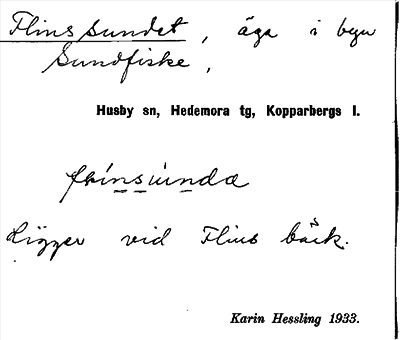 Flinssundet, äga i byn
Sundfiske,
Husby sn, Hedemora tg, Kopparbergs l.
Ligger vid Flins bäck.
Karin Hessling 1933.